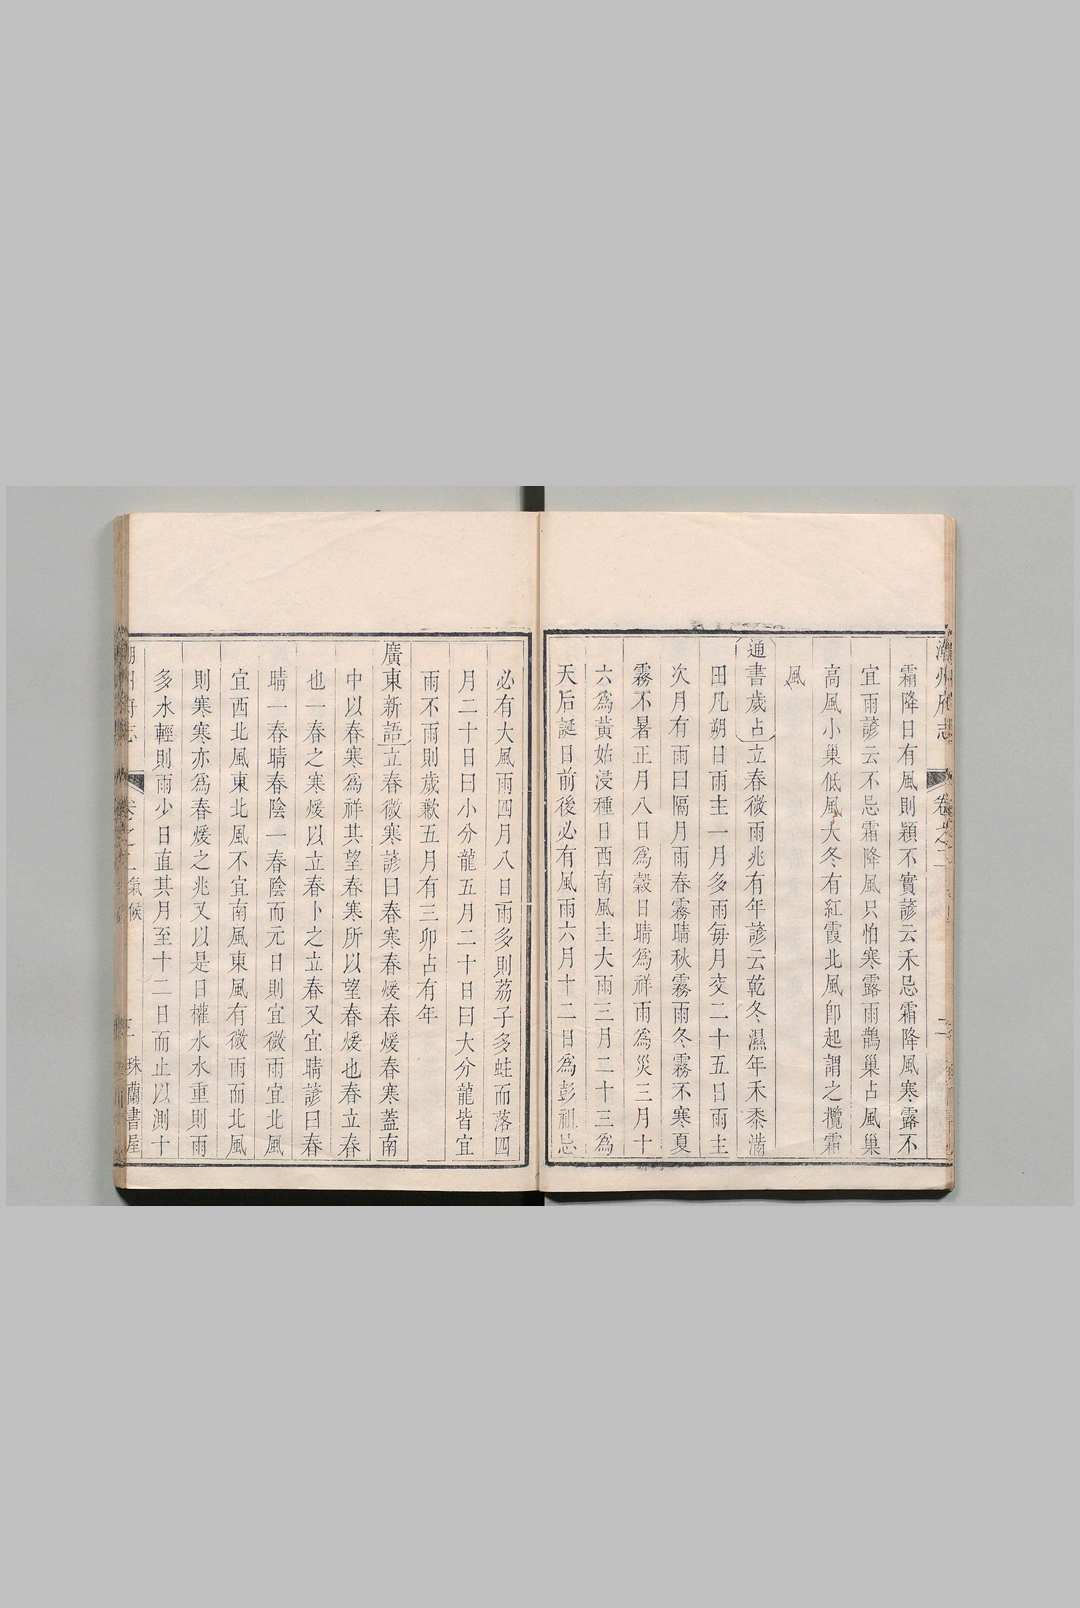 潮州府志 卷之二
霜降日有風則穎不實諺云禾忌霜降風寒露不
宜雨諺云不忌霜降風只怕寒露雨鵲巢占風巢
高風小巢低風大冬有紅霞北風卽起謂之攪霜
風
通書歲占立春微雨兆有年諺云乾冬濕年禾黍滿
田凡朔日雨主一月多雨每月交二十五日雨主
次月有雨曰隔月雨春霧晴秋霧雨冬霧不寒夏
霧不暑正月八日爲穀日晴爲祥雨爲災三月十
六爲黃姑浸種日西南風主大雨三月二十三爲
天后誕日前後必有風雨六月十二日爲彭祖忌
必有大風雨四月八日雨多則荔子多蛀而落四
月二十日曰小分龍五月二十日曰大分龍皆宜
雨不雨則歲歉五月有三卯占有年
廣東新語立春微寒諺曰春寒春煖春煖春寒蓋南
中以春寒爲祥其望春寒所以望春煖也春立春
也一春之寒煖以立春卜之立春又宜晴諺曰春
晴一春晴春陰一春陰而元日則宜微雨宜北風
宜西北風東北風不宜南風東風有微雨而北風
則寒寒亦爲春煖之兆又以是日權水水重則雨
多水輕則雨少日直其月至十二日而止以測十
志 卷之二氣候 珠蘭書屋